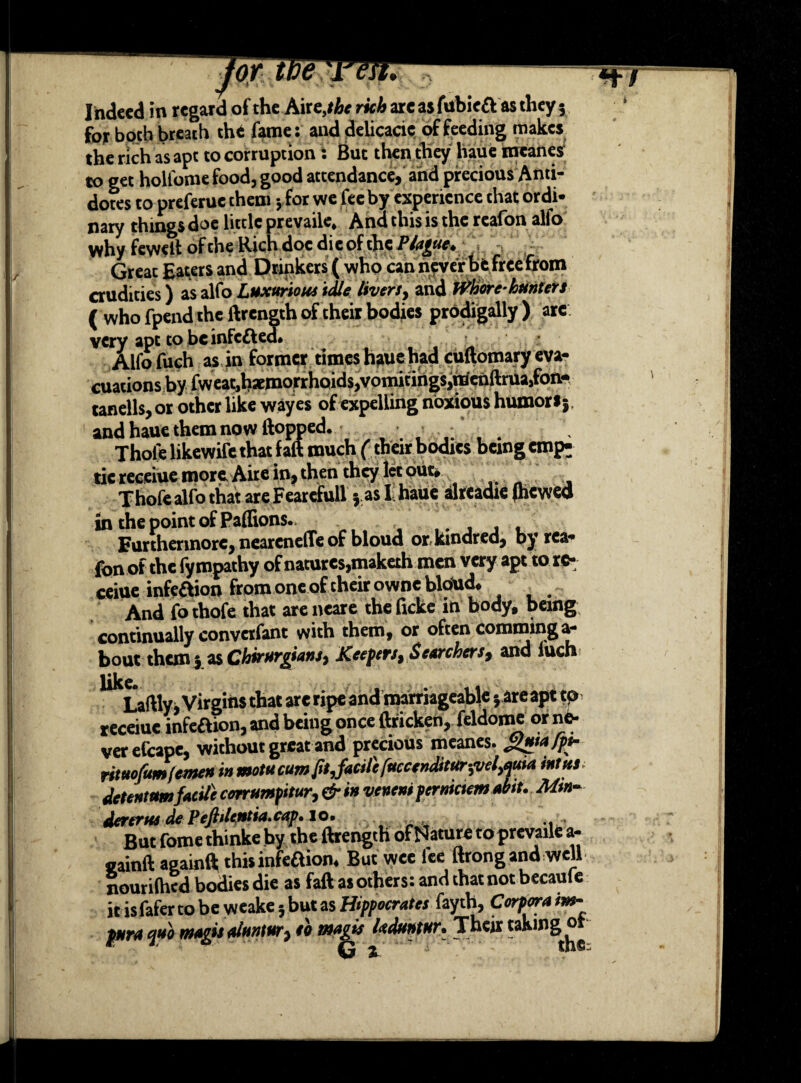 for the Pest.
41
Indeed in regard of the Aire,the rich are as ſubiect as they;
for both breath the ſame: and delicacie of feeding makes
the rich as apt to corruption: But then they haue meanes
to get holſome food, good attendance, and precious Anti-
dotes to preſerue them; for we ſee by experience that ordi-
nary things doe little prevaile. And this is the reaſon alſo
why feweſt of the Rich doe die of the Plague.
Great Eaters and Drinkers (who can never be free from
crudities) as alſo Luxurious idle livers, and Whore-hunters
(who ſpend the ſtrength of their bodies prodigally) are
very apt to be infected.
Alſo ſuch as in former times haue had cuſtomary eva-
cuations by ſweat,hæmorrhoids,vomitings,menſtrua,fon-
tanells, or other like wayes of expelling noxious humors;
and haue them now ſtopped.
Thoſe likewiſe that faſt much (their bodies being emp-
tie receiue more Aire in, then they let out.
Thoſe alſo that are Fearefull; as I haue alreadie ſhewed
in the point of Paſſions.
Furthermore, neareneſſe of bloud or kindred, by rea-
ſon of the ſympathy of natures,maketh men very apt to re-
ceiue infection from one of their owne bloud.
And ſo thoſe that are neare the ſicke in body, being
continually converſant with them, or often comming a-
bout them; as Chirurgians, Keepers, Searchers, and ſuch
like.
Laſtly, Virgins that are ripe and marriageable; are apt to
receiue infection, and being once ſtricken, ſeldome or ne-
ver eſcape, without great and precious meanes. Quia ſpi-
rituoſum ſemen in motu cum ſit,facile ſuccenditur;vel,quia intus
detentum facile corrumpitur, & in veneni perniciem abit. Min-
dererus de Peſtilentia.cap. 10.
But ſome thinke by the ſtrength of Nature to prevaile a-
gainſt againſt this infection. But wee ſee ſtrong and well
nouriſhed bodies die as faſt as others: and that not becauſe
it is ſafer to be weake; but as Hippocrates ſayth, Corpora im-
pura quò magis aluntur, eò magis læduntur. Their taking of
G 2
the